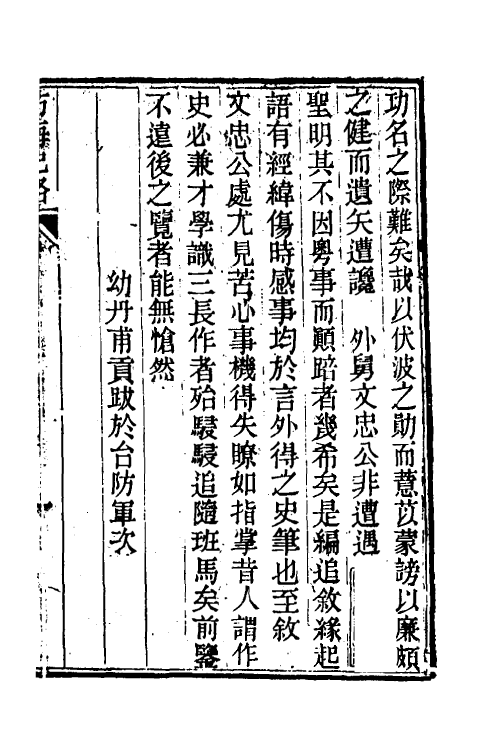 功名之際難矣哉以伏波之勛而薏苡蒙謗以廉頗
之健而遺矢遭讒　外舅文忠公非遭遇
聖明其不因粵事而顚踣者幾希矣是編追敘緣起
語有經緯傷時感事均於言外得之史筆也至敘
文忠公處尤見苦心事機得失瞭如指掌昔人謂作
史必兼才學識三長作者殆駸駸追隨班馬矣前鑒
不遠後之覽者能無愴然
幼丹甫貢跋於台防軍次